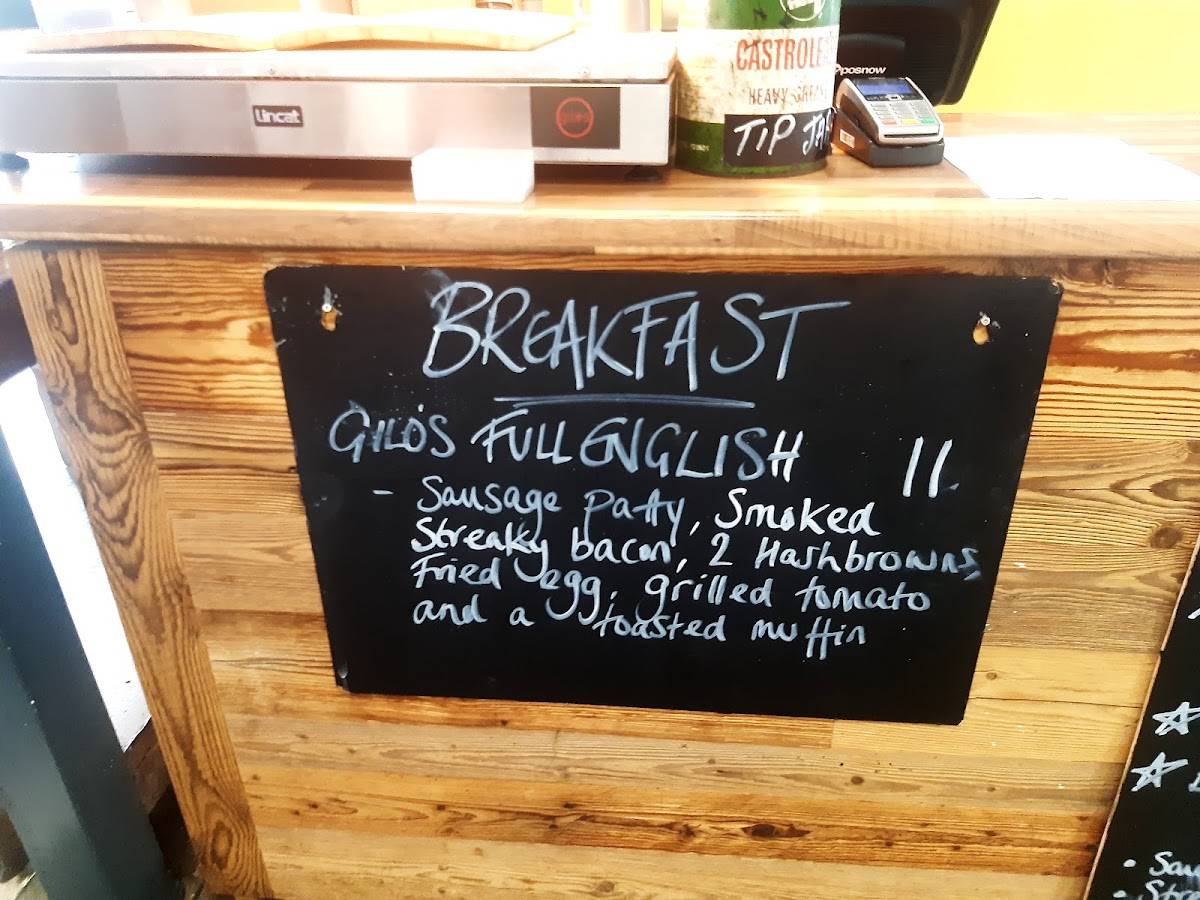 CASTROLE
HEAVY GREAS
TIP JAR
posnow
Lincat
BREAKFAST
GYLO'S FULL ENGLISH 11
- Sausage patty, Smoked
Streaky bacon, 2 Hashbrowns,
Fried egg, grilled tomato
and a toasted muffin
• Sau
• Stre